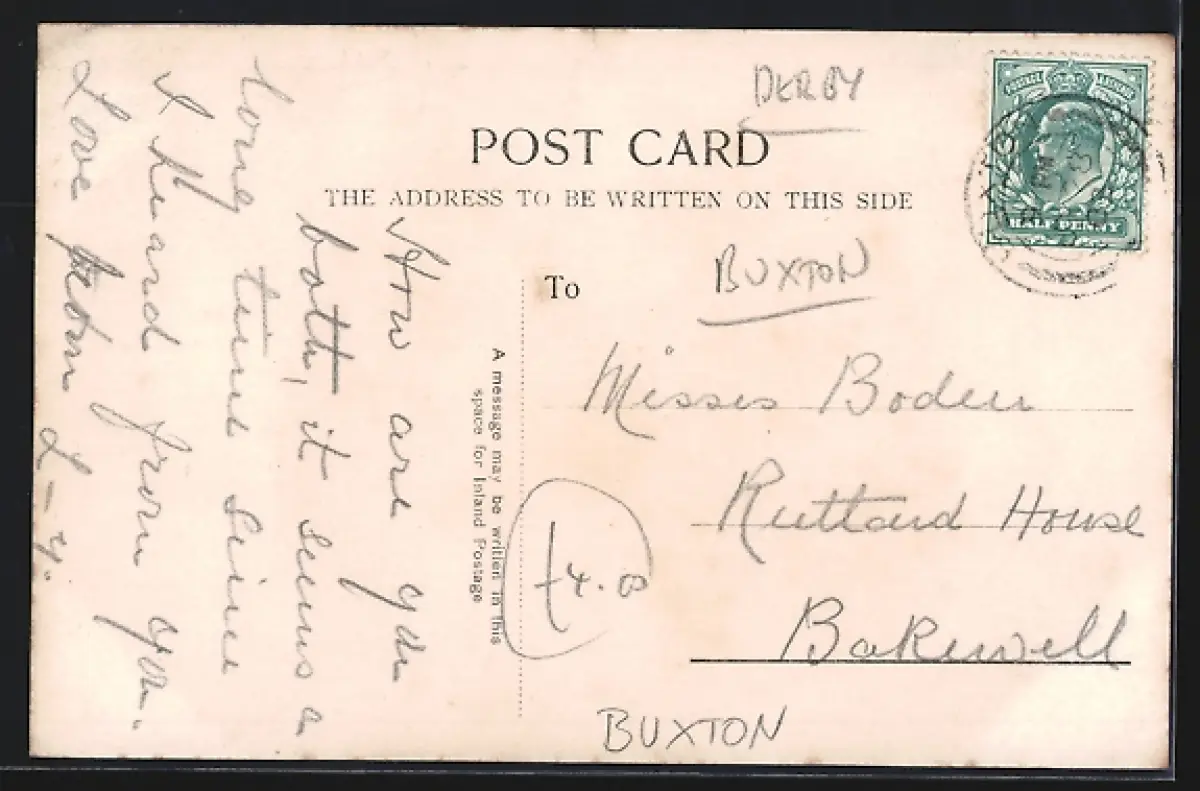 DERBY
POST CARD
THE ADDRESS TO BE WRITTEN ON THIS SIDE
BUXTON
To
Misses Boden
Rutland House
Bakewell
BUXTON
A message may be written in this
space for Inland Postage
How are you
both, it seems a
long time since
I heard from you.
Love from
L-y.
HALF PENNY
BUXTON